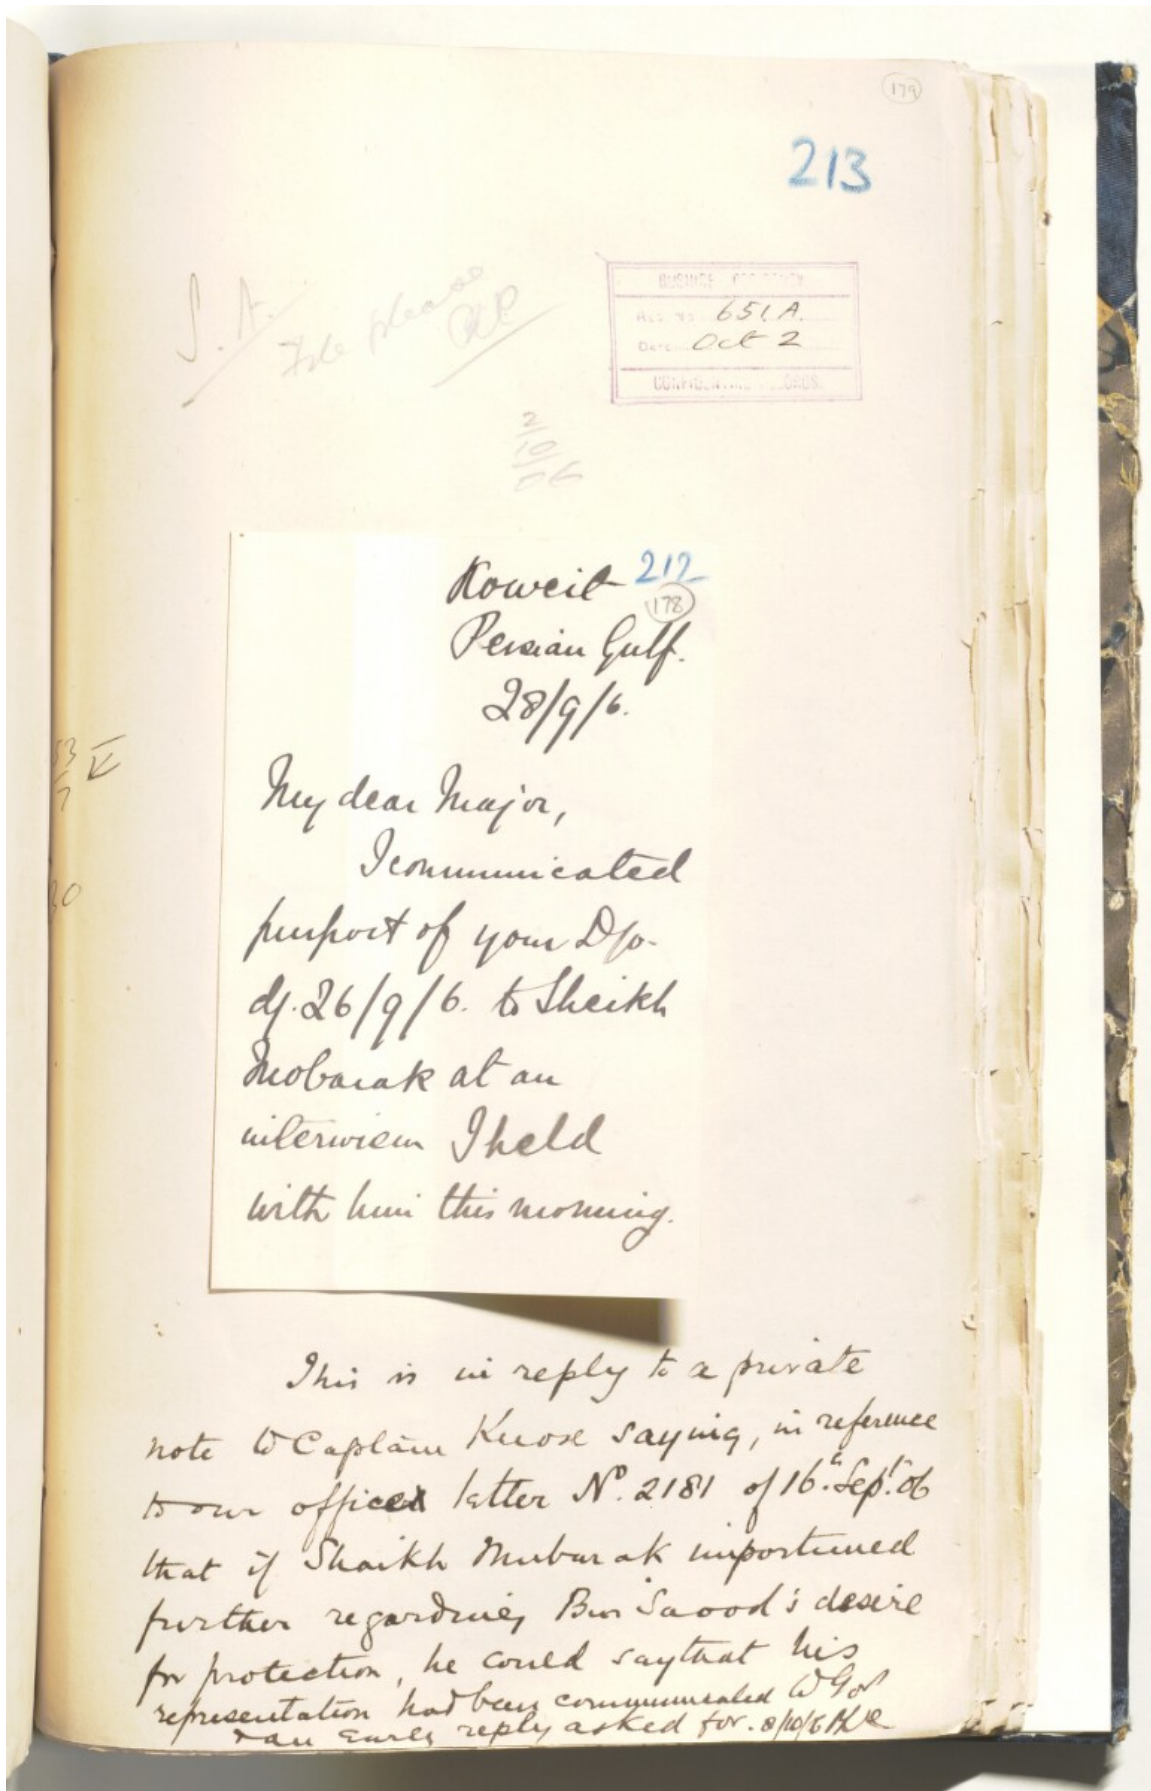 179
213
S. A.
File please
BUSHIRE RESIDENCY
Reg. No. 651.A.
Date Oct 2
CONFIDENTIAL RECORDS.
2/10/06
Koweit 212
178
Persian Gulf.
28/9/6.
My dear Major,
I communicated
purport of your D/o-
d/. 26/9/6. to Sheikh
Mobarak at an
interview I held
with him this morning.
This is in reply to a private
note to Captain Knox saying, in reference
to our office letter No. 2181 of 16th Sept. 06
that if Shaikh Mubarak importuned
further regarding Bin Saood's desire
for protection, he could say that his
representation had been communicated to Govt
& an early reply asked for. 2/10/6